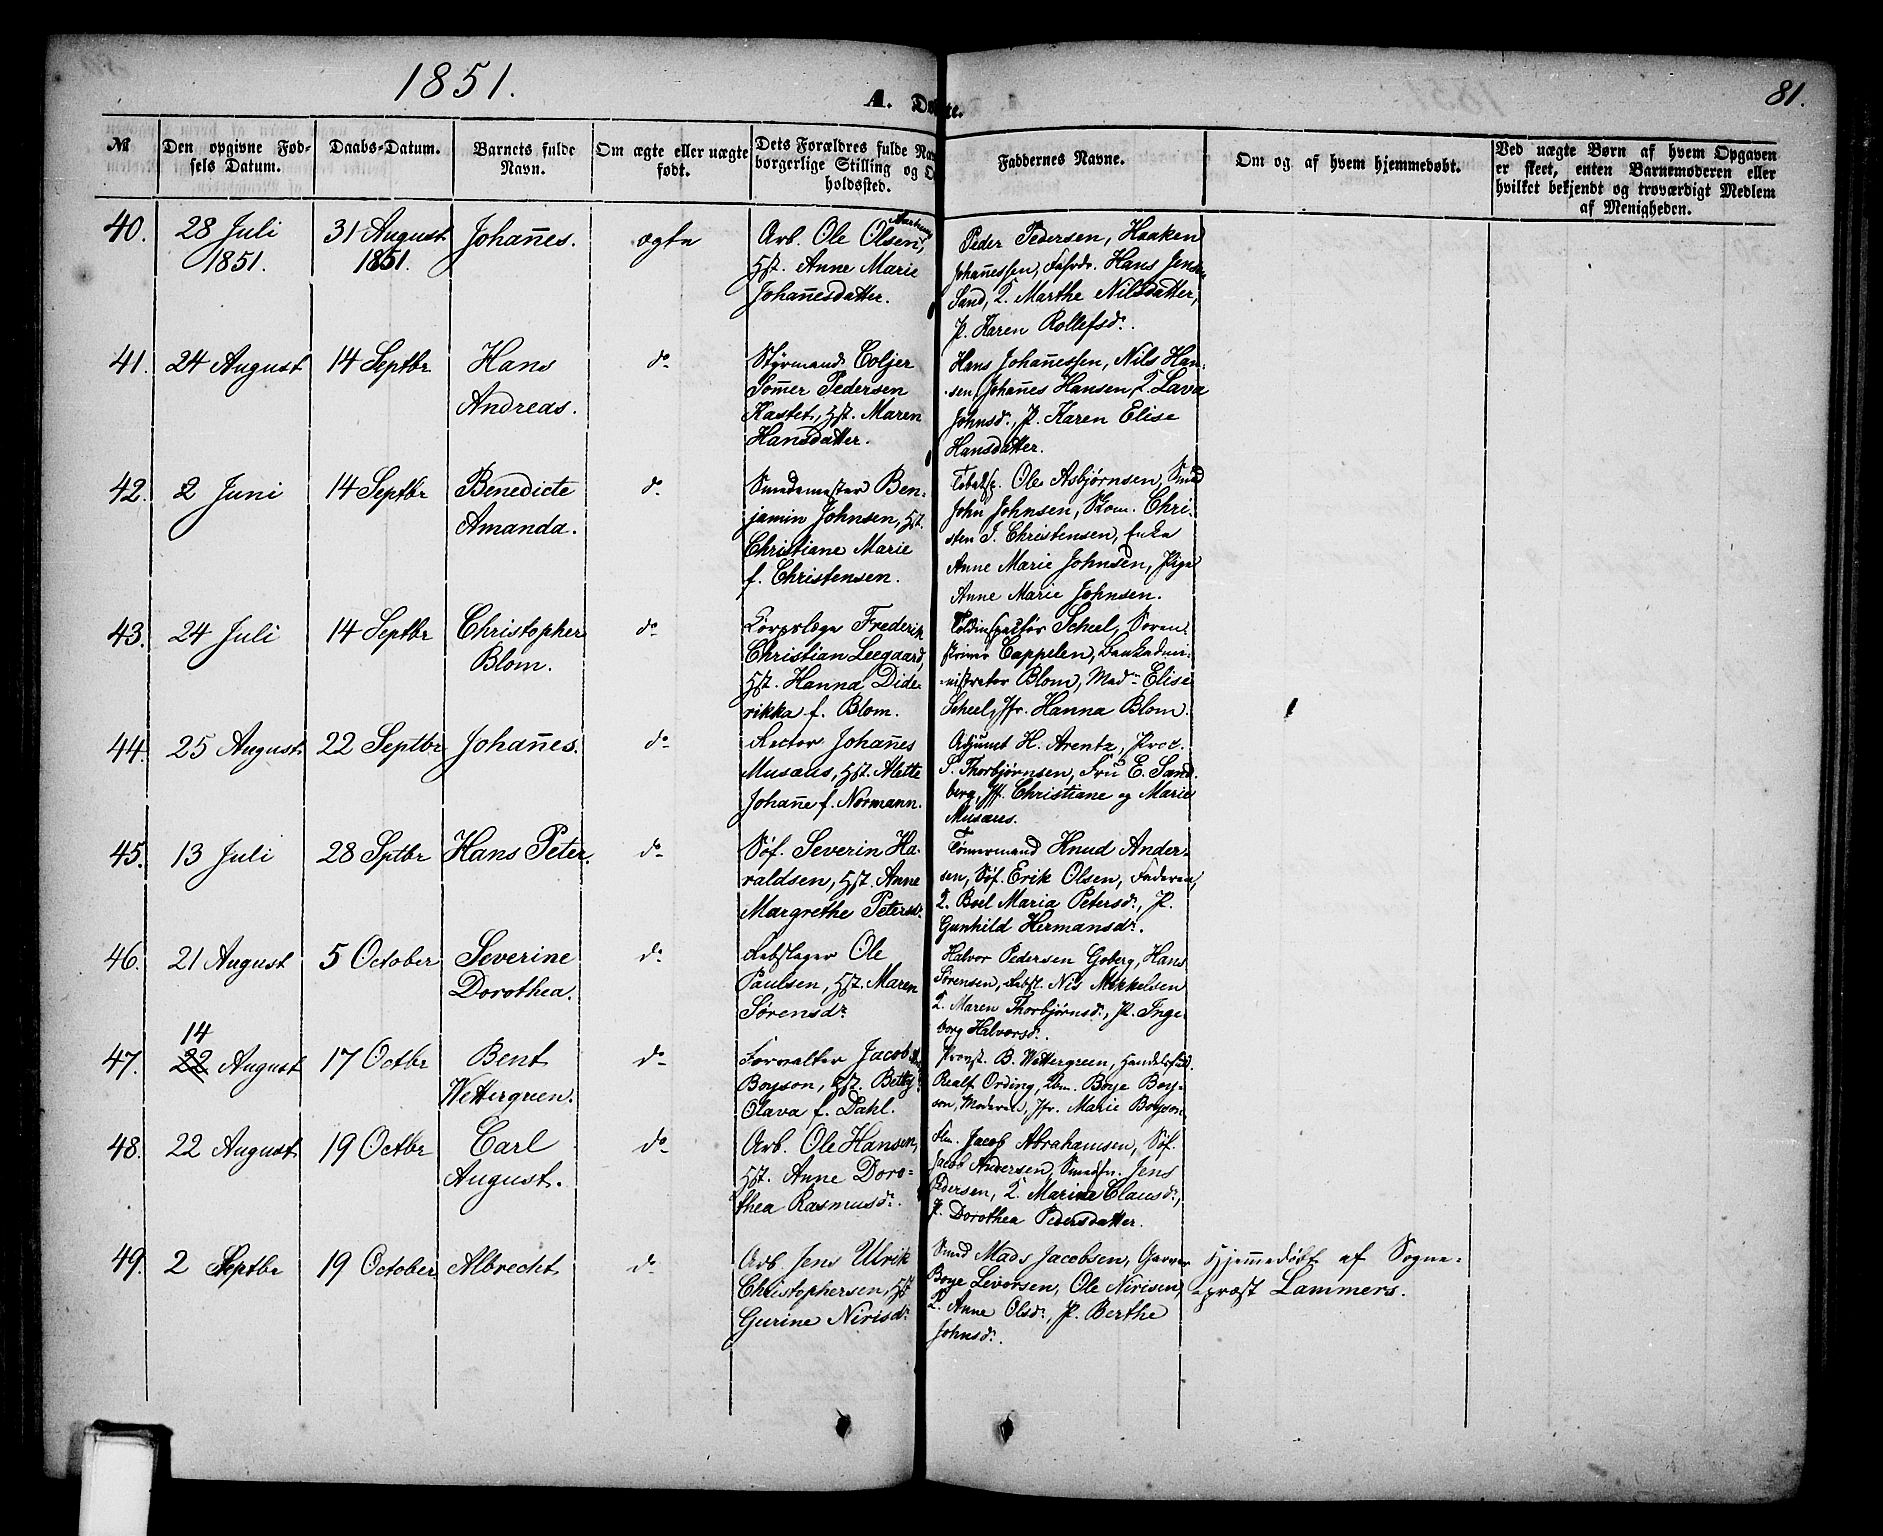 1851.
A. Døbte.
81.
No
Den opgivne Fød-
sels Datum.
Daabs-Datum.
Barnets fulde
Navn.
Om ægte eller uægte
født.
Dets Forældres fulde Na
borgerlige Stilling og O
holdssted.
Faddernes Navne.
Om og af hvem hjemmedøbt.
Ved uægte Børn af hvem Opgaven
er skeet, enten Barnemoderen eller
hvilket bekjendt og troværdigt Medlem
af Menigheden.
40.
28 Juli
1851.
31 August
1851.
Johan̄es.
ægte
Arb. Ole Olsen,
Hst. Anne Marie
Johan̄esdatter.
Peder Pedersen, Haaken
Johan̄essen, Hans Jensen
Sand, Q. Marthe Nilsdatter,
P. Karen Rollefsdr.
41.
24 August
14 Septbr
Hans
Andreas.
do
Styrmand Coljer
Som̄er Pedersen
Kastet, Hst. Maren
Hansdatter.
Hans Johan̄essen, Nils Han-
sen, Johan̄es Hansen, Q. Lava
Johnsdr., P. Karen Elise
Hansdatter.
42.
2 Juni
14 Septbr
Benedicte
Amanda.
do
Smedemester Ben-
jamin Johnsen, Hst.
Christiane Marie
f. Christensen.
Ole Asbjørnsen, Smed
John Johnsen, Skom. Chri-
sten J. Christensen, Enke
Anne Marie Johnsen, Pige
Anne Marie Johnsen.
43.
24 Juli
14 Septbr
Christopher
Blom.
do
Corpslæge Frederik
Christian Leegaard,
Hst. Hanna Dide-
rikka f. Blom.
Toldinspecteur Scheel, Soren-
skriver Cappelen, Bankadmi-
nistrator Blom, Madm Elise
Scheel, Jfr. Hanna Blom.
44.
25 August
22 Septbr
Johan̄es.
do
Rector Johan̄es
Musæus, Hst. Alette
Johan̄e f. Normann.
Adjunct H. Arentz, Proc.
S. Thorbjørnsen, Fru E. Sand-
berg, Jf. Christiane og Marie
Musæus.
45.
13 Juli
28 Sptbr
Hans Peter.
do
Søf. Severin Ha-
raldsen, Hst. Anne
Margrethe Petersdr.
Tømmermand Knud Ander-
sen, Søf. Erik Olsen, Faderen,
Q. Boel Maria Petersdr., P.
Gunhild Hermansdr.
46.
21 August
5 October
Severine
Dorothea.
do
Rebslager Ole
Paulsen, Hst. Maren
Sørensdr.
Halvor Pedersen Goberg, Hans
Sørensen, Rebsl. Nis Mikkelsen
Q. Maren Thorbjørnsdr., P. Inge-
borg Halvorsdr.
14
47.
22 August
17 Octbr
Bent
Wettergreen.
do
Forvalter Jacob
Boyson, Hst. Betty
Olava f. Dahl.
Provst B. Wettergreen, Handelsfuldm.
Realf Ording, Boye Boy-
son, Moderen, Jfr. Marie Boyson.
48.
22 August
19 Octbr
Carl
August.
do
Arb. Ole Hansen,
Hst. Anne Doro-
thea Rasmusdr.
Jacob Abrahamsen, Søf.
Jacob Andersen, Smedsv. Jens
Pedersen, Q. Marine Clausdr,
P. Dorothea Pedersdatter.
49.
2 Septbr
19 October
Albrecht
do
Arb. Jens Ulrik
Christophersen, Hst.
Gurine Nirisdr.
Smed Mads Jacobsen, Garver
Boye Levorsen, Ole Nirisen,
Q. Anne Olsdr., P. Berthe
Johnsdr.
Hjem̄edøbt af Sogne-
præst Lammers.